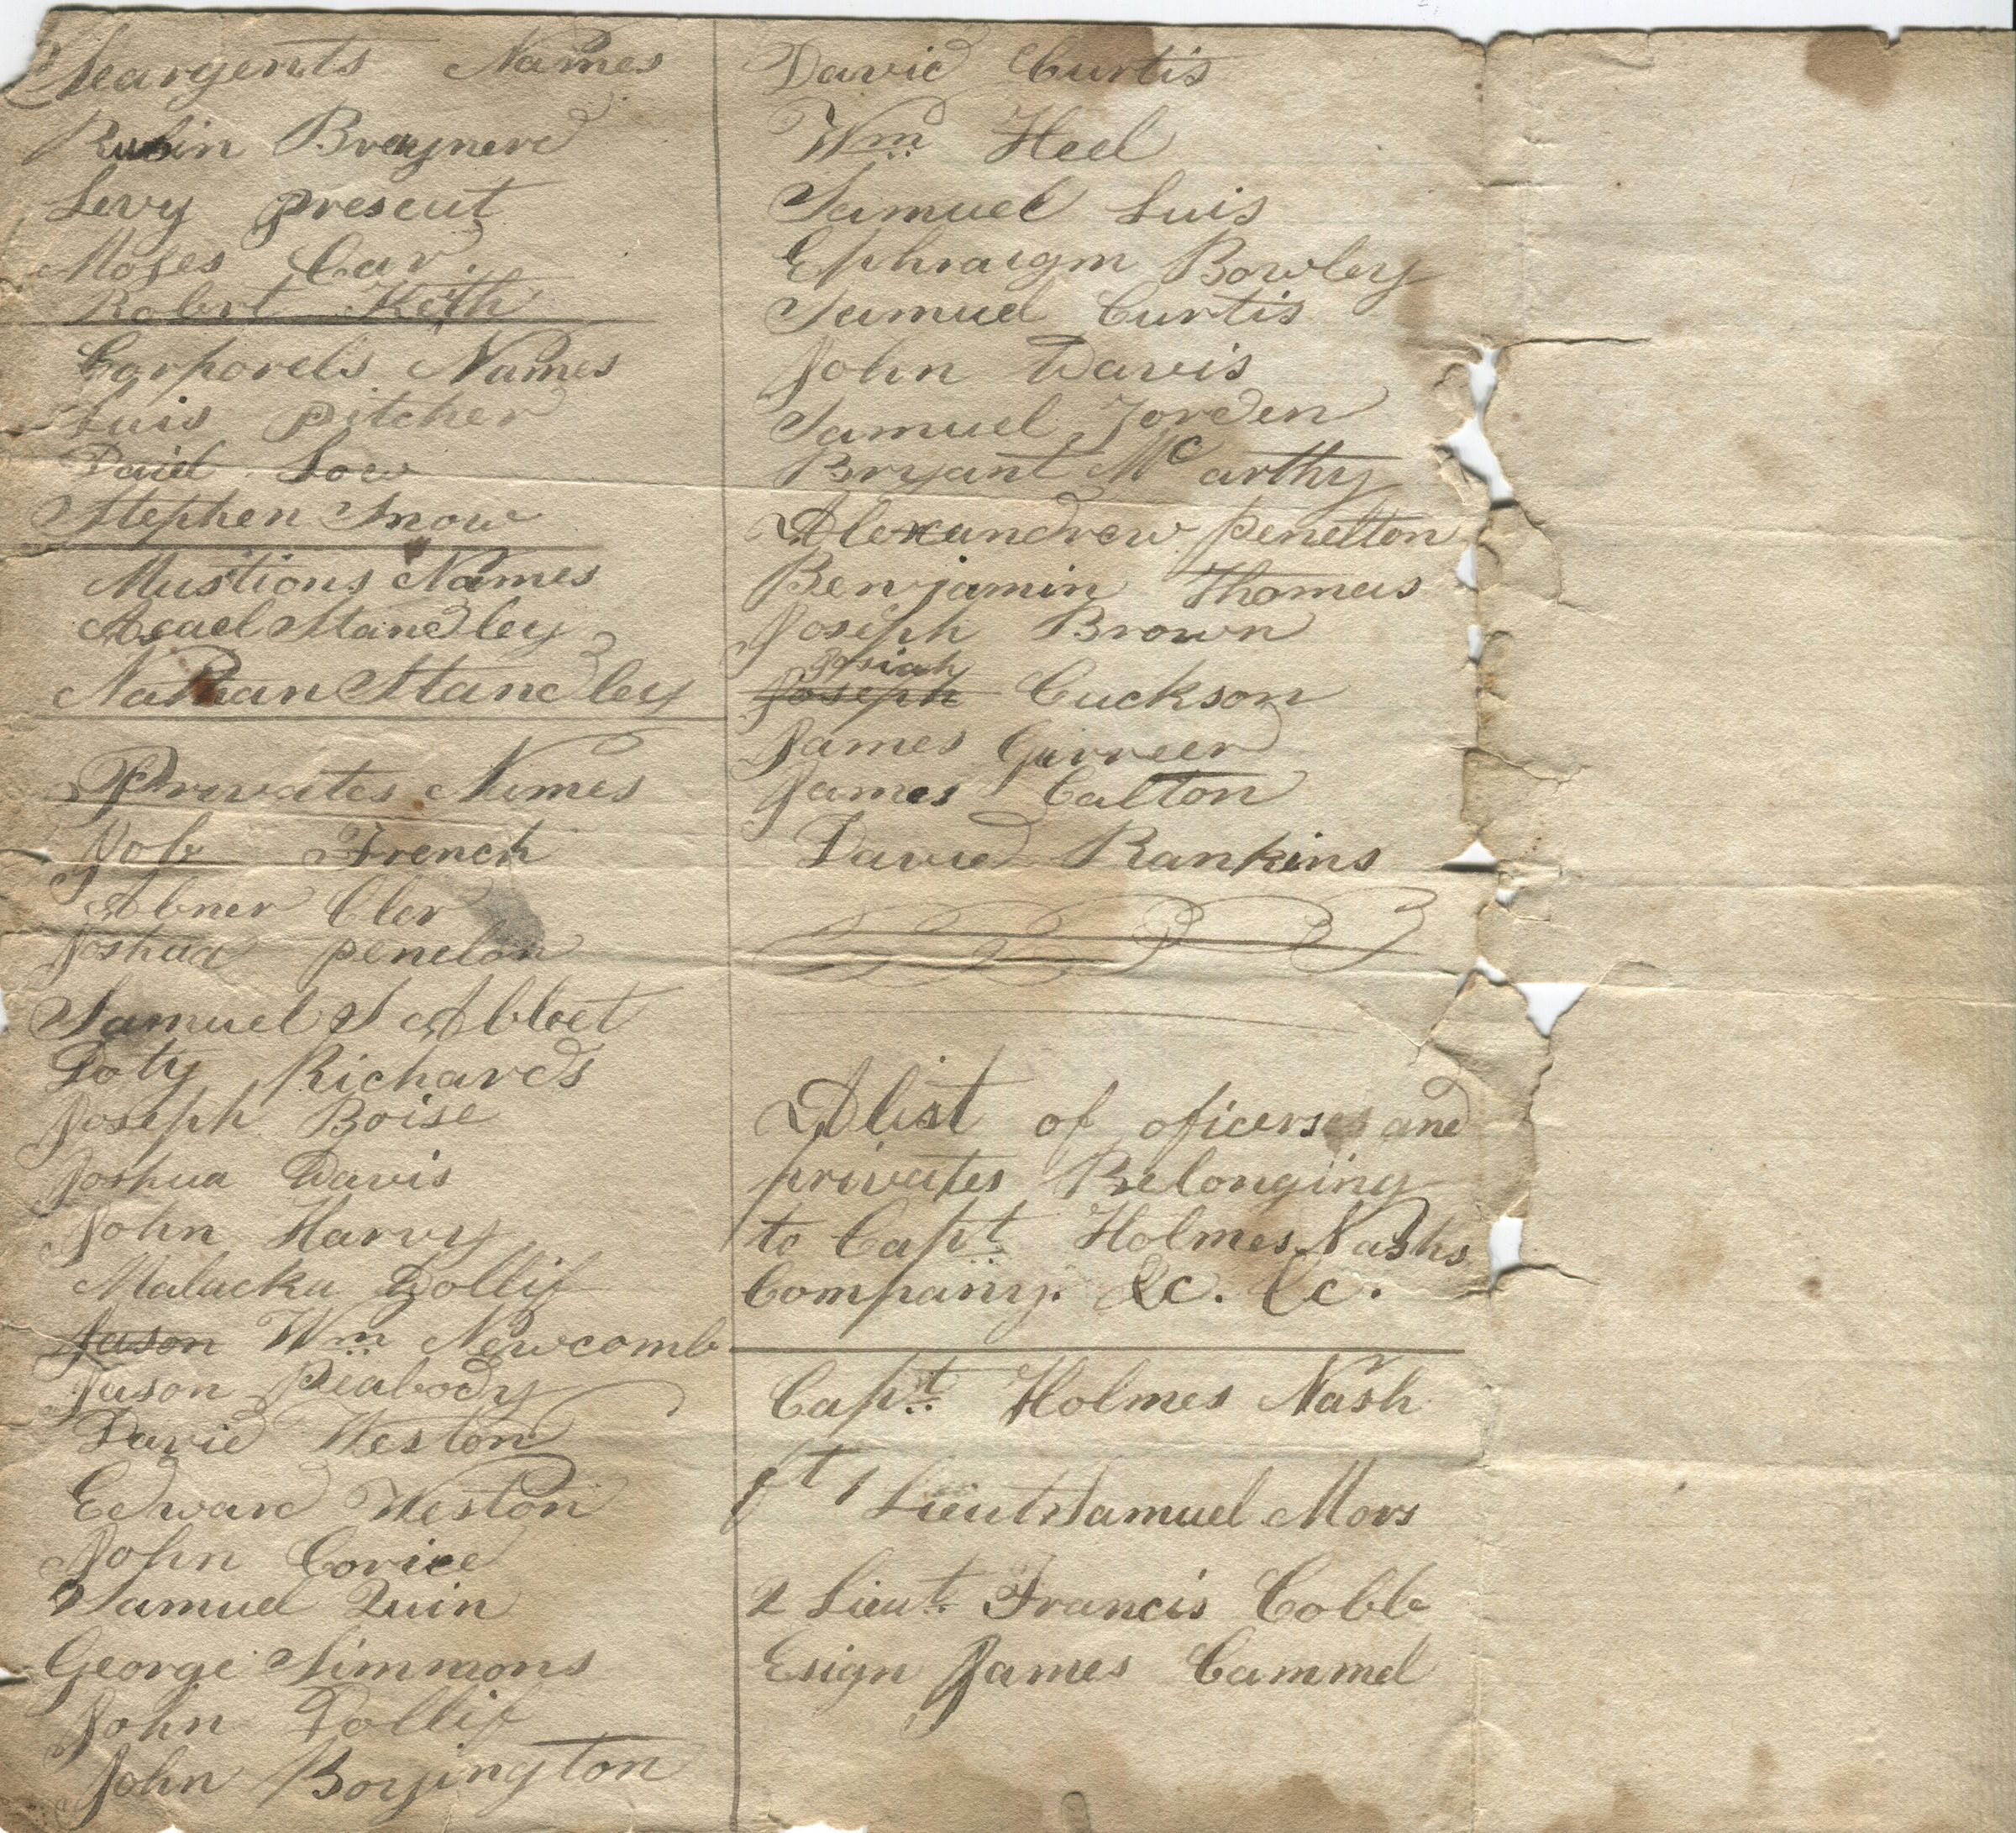 Seargents Names
Rubin Braynerd
Levy prescut
Moses Car
Robert Keith
Corporels Names
Luis pitcher
Daid Low
Stephen Snow
Mustions Names
Asael Standley
Nathan Standley
Privates Names
Job French
Abner Cler
Joshua penelon
Samuel S Abboet
Doty Richards
Joseph Boise
Joshua Davis
John Harvy
Malacku Dollif
Jason Wm Newcomb
Jason Peabody
David Weston
Edward Weston
John Coried
Samuel Quin
George Simmons
John Dollif
John Boyington
David Curtis
Wm Heel
Samuel Luis
Ephraigm Bowley
Samuel Curtis
John Davis
Samuel Jorden
Bryant Mc arthy
Alexandrew penelton
Benjamin Thomas
Joseph Brown
Josiah
Joseph Cuckson
James Gurreer
James Calton
David Rankins
A list of oficerses and
privates Belonging
to Capt Holmes Nashs
Company. &c. &c.
Capt Holmes Nash
1 Lieut Samuel Mors
2 Lieut. Francis Cobb
Esign James Cammel